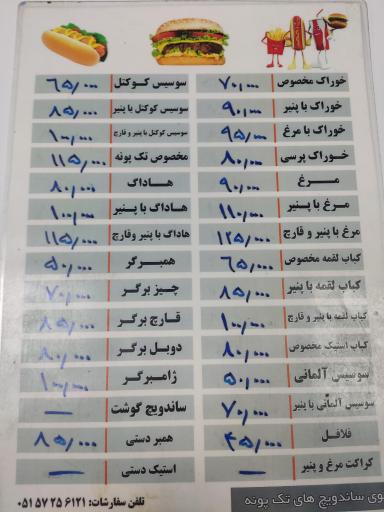 خوراک مخصوص ۷۰/۰۰۰
خوراک با پنیر ۹۰/۰۰۰
خوراک با مرغ ۹۵/۰۰۰
خوراک پرسی ۸۰/۰۰۰
مرغ ۹۰/۰۰۰
مرغ با پنیر ۱۱۰/۰۰۰
مرغ با پنیر و قارچ ۱۲۵/۰۰۰
کباب لقمه مخصوص ۶۵/۰۰۰
کباب لقمه با پنیر ۸۵/۰۰۰
کباب لقمه با پنیر و قارچ ۱۰۰/۰۰۰
کباب استیک مخصوص ۸۰/۰۰۰
سوسیس آلمانی ۵۰/۰۰۰
سوسیس آلمانی با پنیر ۷۰/۰۰۰
فلافل ۴۵/۰۰۰
کراکت مرغ و پنیر —
سوسیس کوکتل ۶۵/۰۰۰
سوسیس کوکتل با پنیر ۸۵/۰۰۰
سوسیس کوکتل با پنیر و قارچ ۱۰۰/۰۰۰
مخصوص تک پونه ۱۱۵/۰۰۰
هاداگ ۸۰/۰۰۰
هاداگ با پنیر ۱۰۰/۰۰۰
هاداگ با پنیر وقارچ ۱۱۵/۰۰۰
همبرگر ۵۰/۰۰۰
چیز برگر ۷۰/۰۰۰
قارچ برگر ۸۵/۰۰۰
دوبل برگر ۸۰/۰۰۰
ژامبرگر ۱۰۰/۰۰۰
ساندویچ گوشت —
همبر دستی ۸۵/۰۰۰
استیک دستی —
تلفن سفارشات: ۰۵۱۵۷۲۵۶۱۲۱
منوی ساندویچ های تک پونه